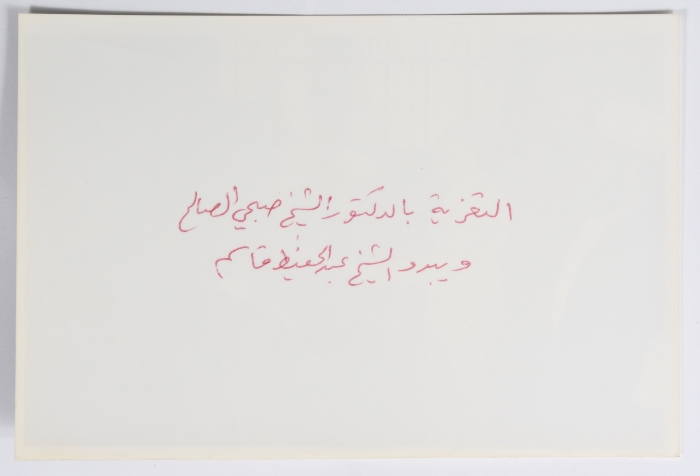 التعزية بالدكتور الشيخ صبحي الصالح
ويبدو الشيخ عبد الحفيظ قاسم